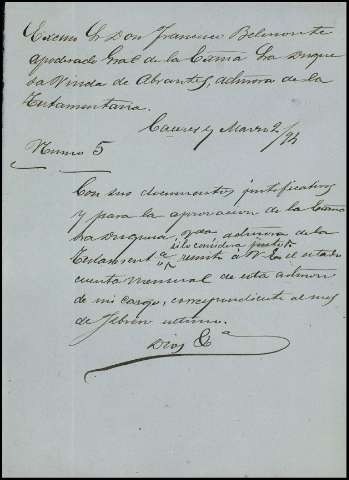 Excmo Sr Don Francisco Belmonte
apoderado Gral de la Exma Sra Duque
sa Viuda de Abrantes, admora de la
Testamentaria.
Caceres y Marzo 2/94
Numo 5
Con sus documentos justificativos
y para la aprovacion de la Exma
Sra Duquesa, admora de la
si lo considera justo
Testament.a remito á V el estado
cuenta mensual de esta admon
de mi cargo, correspondiente al mes
de Febrero ultimo.
Dios &a